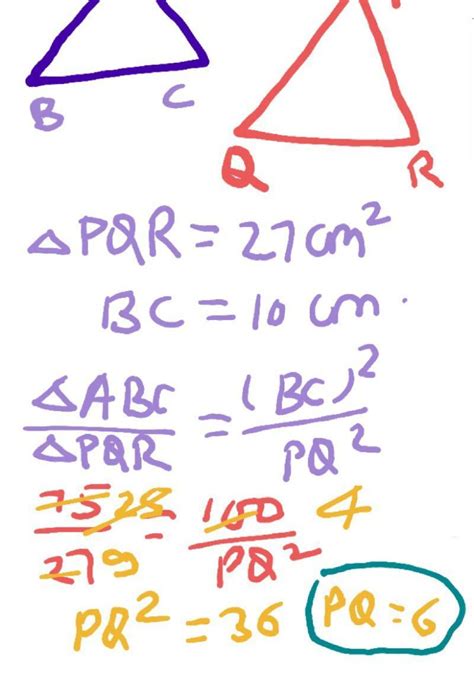 B C
Q R
△PQR = 27 cm²
BC = 10 cm.
△ABC / △PQR = (BC)² / PQ²
75 25 / 27 9 = 100 4 / PQ²
PQ² = 36 PQ = 6